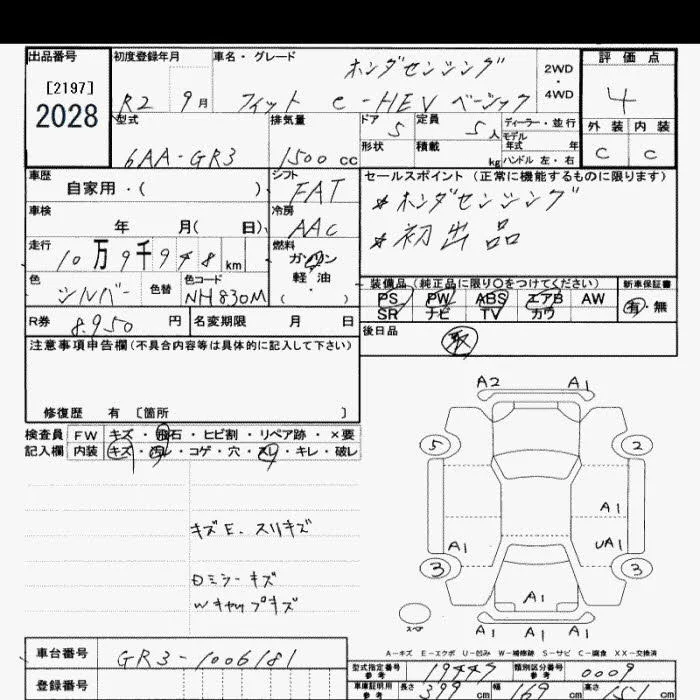 出品番号
[2197]
2028
初度登録年月
R2 9月
車名・グレード
ホンダセンシング
フィット e-HEV ベーシック
2WD
・
4WD
評価点
4
外装 内装
C C
型式
6AA-GR3
排気量
1500 cc
ドア 5
形状
定員 5人
積載 kg
ディーラー・並行
モデル
年式 年
ハンドル 左・右
車歴
自家用・( )
シフト
FAT
セールスポイント (正常に機能するものに限ります)
*ホンダセンシング
*初出品
車検
年 月( 日)
冷房
AAC
走行
10万9千948km
燃料
ガソリン
軽・油
( )
色
シルバー
色替
色コード
NH830M
装備品(純正品に限り〇をつけてください)
PS PW ABS エアB AW
SR ナビ TV カワ
新車保証書
有・無
R券 8.950円
名変期限 月 日
後日品
取
注意事項申告欄(不具合内容等は具体的に記入して下さい)
修復歴 有 [箇所 ]
検査員
記入欄
FW キズ・飛石・ヒビ割・リペア跡・×要
内装 キズ・汚レ・コゲ・穴・スレ・キレ・破レ
キズE. スリキズ
Dミラーキズ
Wキャップキズ
A2 A1
5 2
A1
A1 UA1
3 3
A1
スペア
A1 A1 A1
A-キズ E-エクボ U-凹み W-補修跡 S-サビ C-腐食 XX-交換済
車台番号 GR3-1006181
登録番号
型式指定番号
参考
19447
類別区分番号
参考
0009
車庫証明用
参考
長さ 399 cm
幅 169 cm
高さ 151 cm